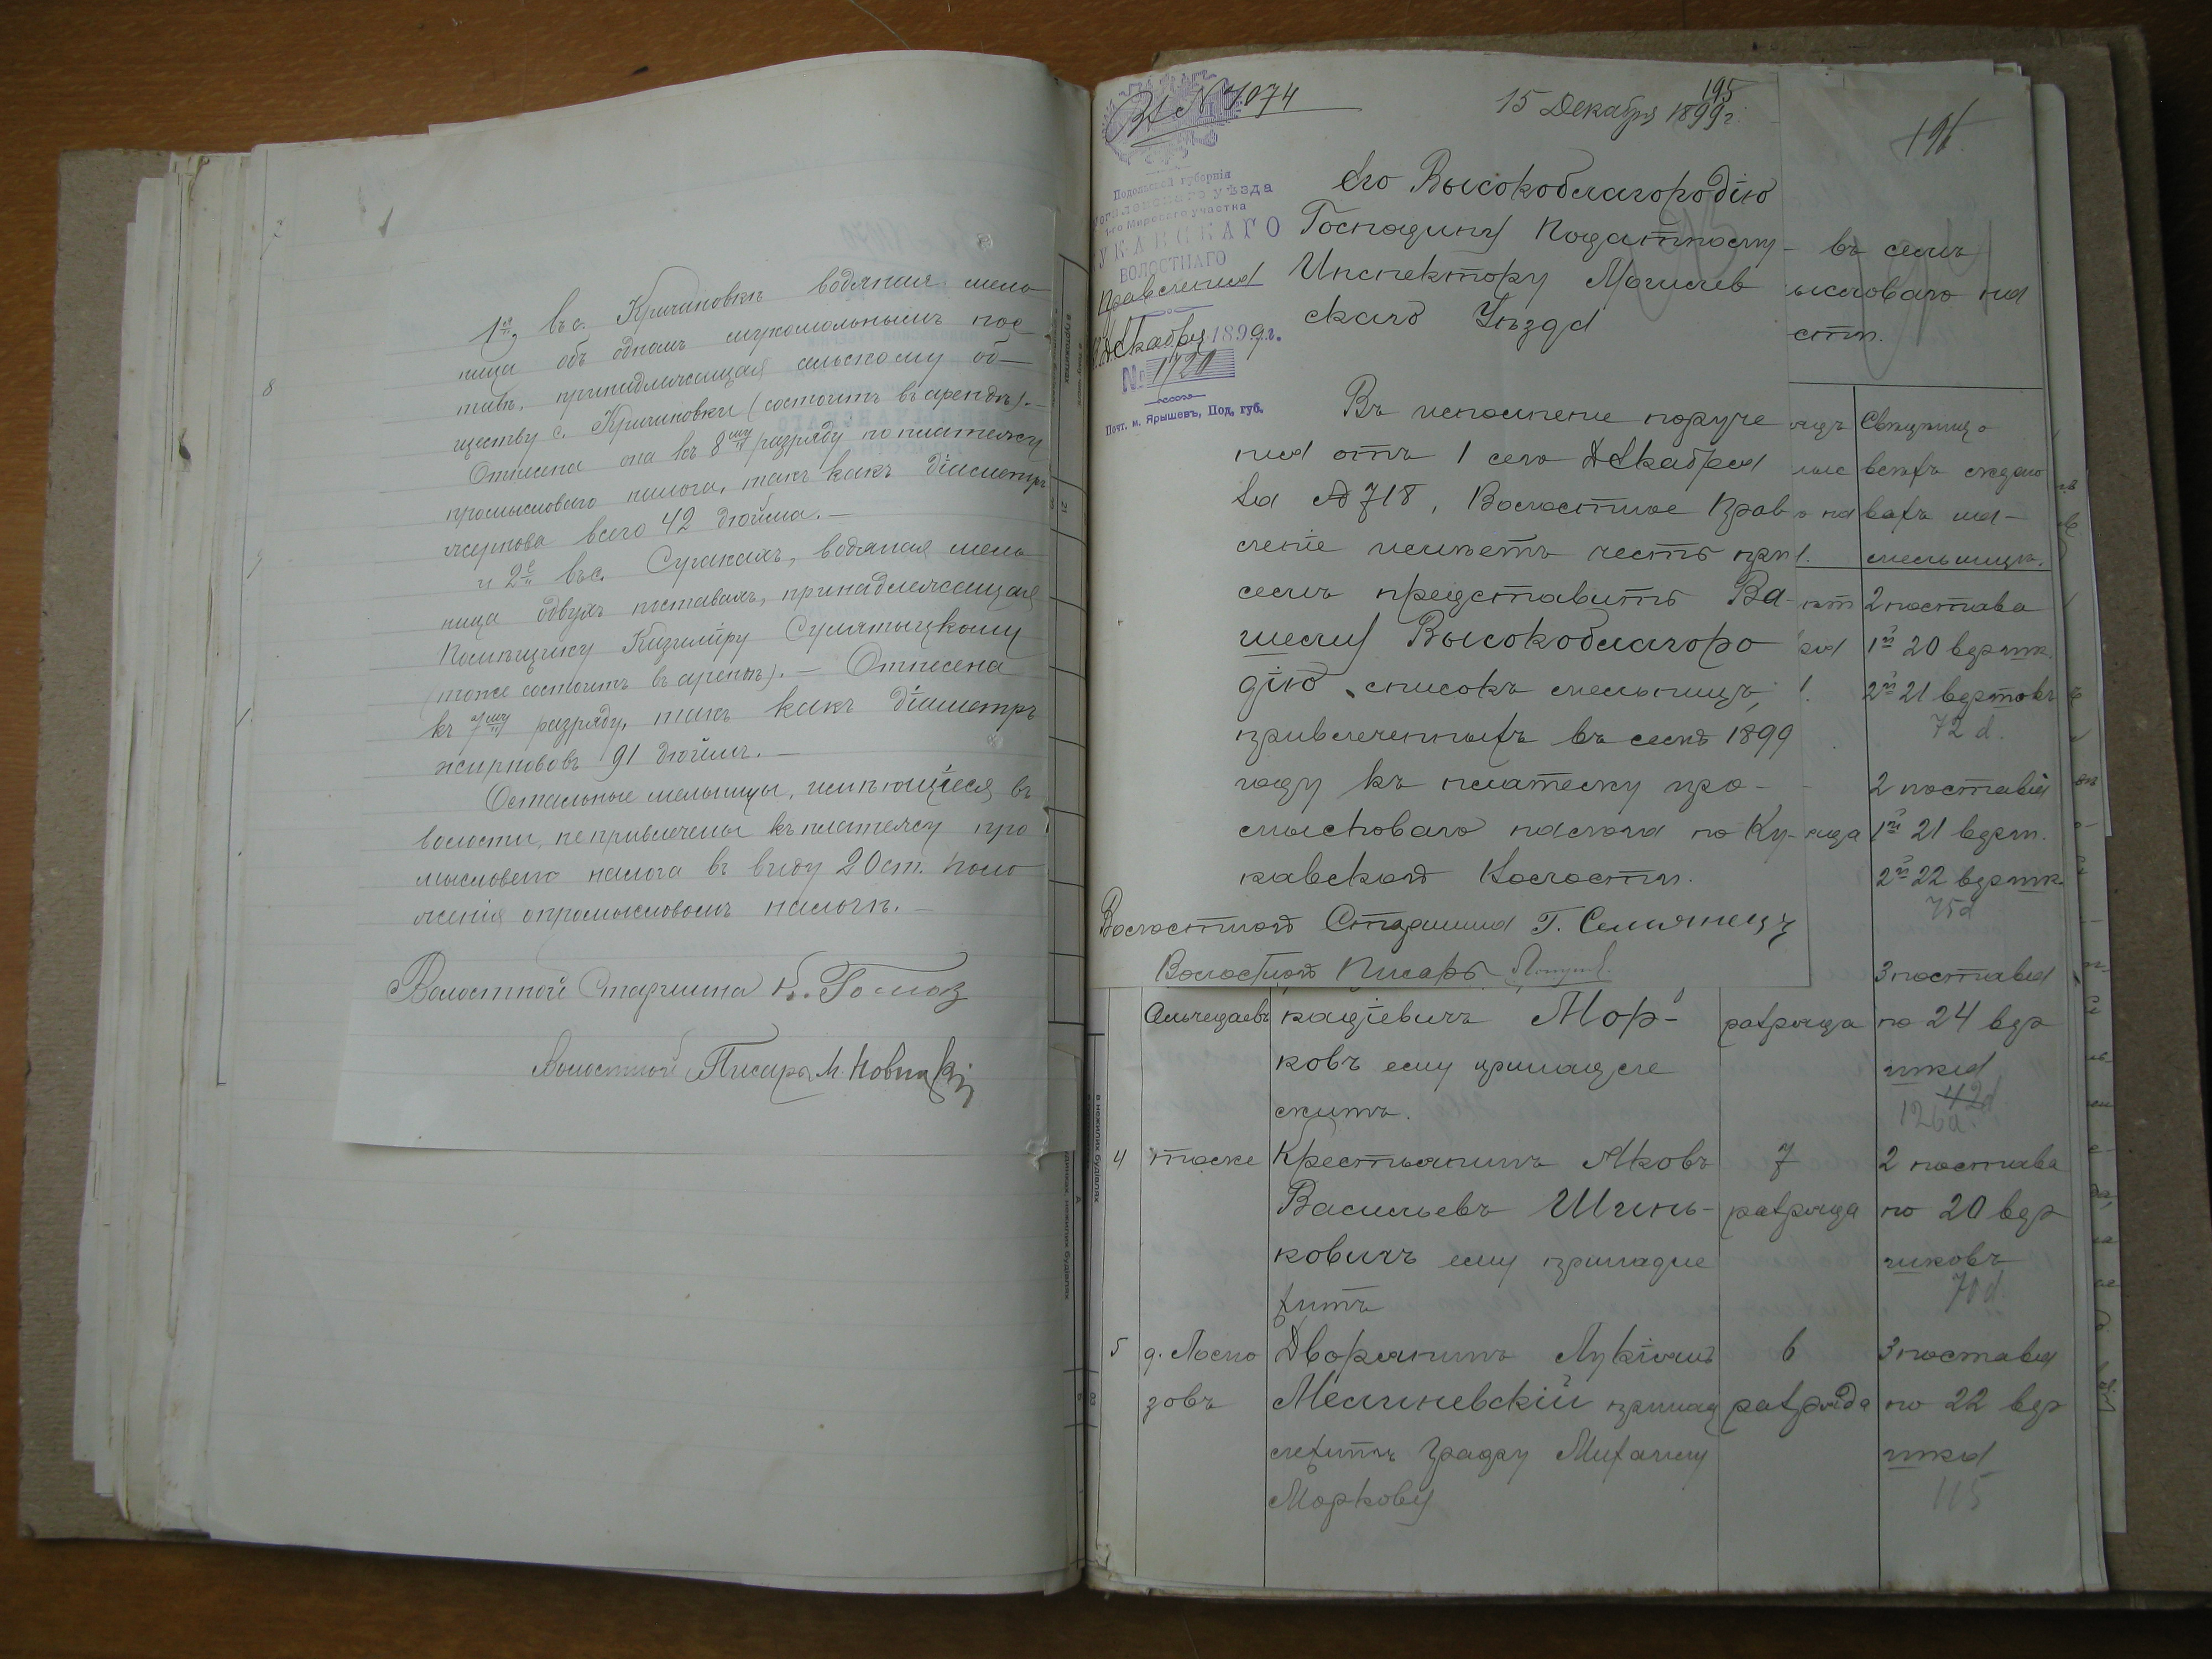 1я, въ с. Кричиновкѣ водяная мель
ница объ одномъ мукомольнымъ пос
тавѣ, принадлежащая сельскому об-
ществу с. Кричиновки (состоитъ въ арендѣ).-
Отнесена она къ 8му разряду по платежу
промысловаго налога, такъ какъ діаметръ
жернова всего 42 дюйма.-
и 2я въ с. Сугакахъ, водяная мель
ница о двухъ поставахъ, принадлежащая
Помѣщику Казиміру Сулятыцкому
(тоже состоитъ въ арендѣ).- Отнесена
къ 7му разряду, такъ какъ діаметръ
жернововъ 91 дюймъ.-
Остальные мельницы, имѣющіеся въ
волости, не привлечены къ платежу про
мысловаго налога въ виду 20 ст. Поло
женія о промысловомъ налогѣ.-
Волостной Старшина
Волостной Писарь М. Новицкій
№ 1074
15 Декабря 1899 г.
195
196
Подольской губерніи
Могилевскаго уѣзда
1-го Мироваго участка
КУКАВСКАГО
ВОЛОСТНАГО
Правленія
Декабря 1899 г.
№ 1720
Почт. м. Ярышевъ, Под. губ.
Его Высокоблагородію
Господину Податному
Инспектору Могилев
скаго Уѣзда
Въ исполненіе поруче
нія отъ 1 сего Декабря
за № 718, Волостное Прав
леніе имѣетъ честь при
семъ представить Ва-
шему Высокоблагоро
дію списокъ мельницъ,
привлеченныхъ въ семъ 1899
году къ платежу про-
мысловаго налога по Ку-
кавской Волости.
Волостной Старшина Г. Семянецъ
Волостной Писарь
въ семъ
ысловаго на
сти.
вахъ ме-
мельницѣ.
2 постава
1й 20 вершк.
2й 21 вершковъ
72 d.
2 постава
1й 21 верш.
2й 22 вершк.
75d
3 постава
кадіевичъ Мор- разряда по 24 вер
ковъ ему принадле шка
житъ. 126d.
4 тоже Крестьянинъ Яковъ 7 2 постава
Васильевъ Шинь- разряда по 20 вер
ковичъ ему принадле шковъ
житъ 70d
5 д. Лоско Дворянинъ Лукіянъ 6 3 постава
зовъ принад разряда по 22 вер
лежитъ Графу Михаилу шка
Моркову 115